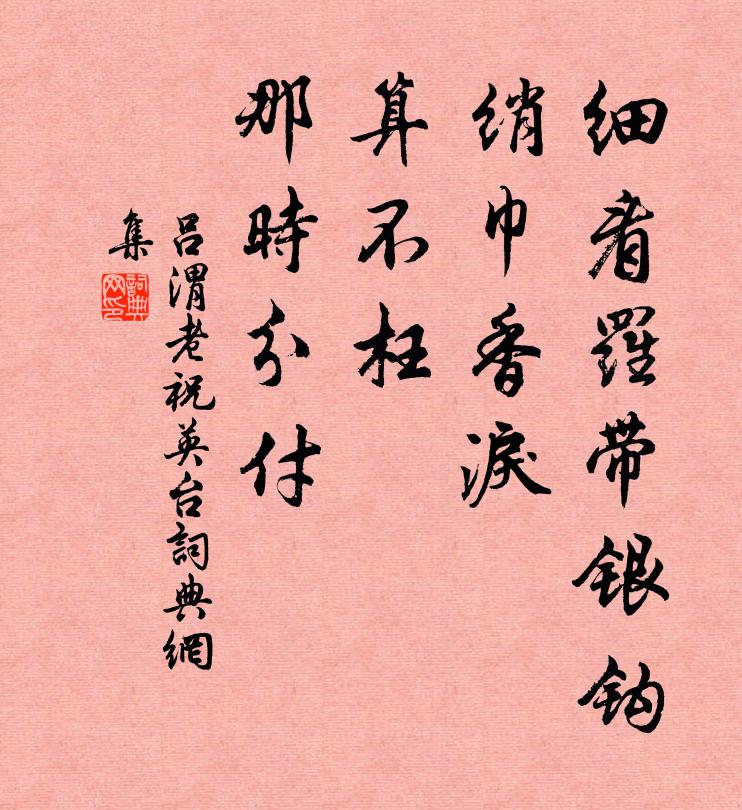 细看羅带银钩
绡巾香淚
算不枉
那時分付
吕渭老祝英台詞典網
集
詞典网印